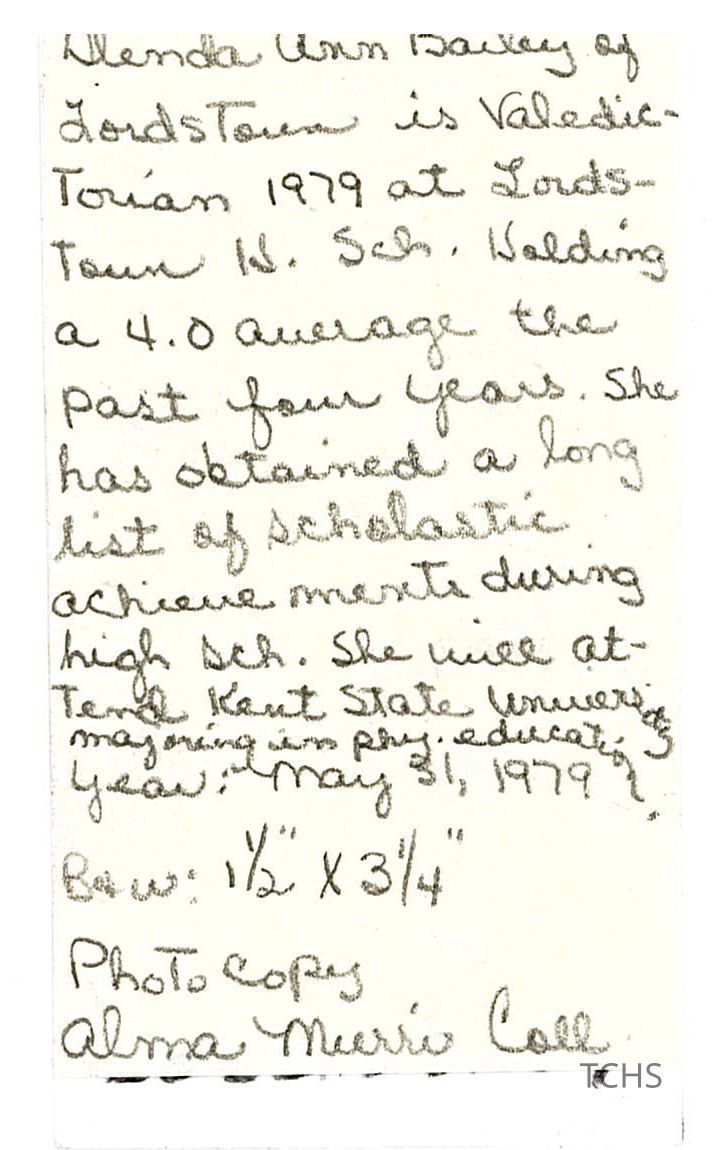 Glenda Ann Bailey of
Lordstown is Valedic-
torian 1979 at Lords-
town H. Sch. Holding
a 4.0 average the
past four years. She
has obtained a long
list of scholastic
achievements during
high sch. She will at-
tend Kent State University
majoring in phy. education.
Year: May 31, 1979
B&W: 1½" X 3¼"
Photo Copy
Alma Murri Coll.
TCHS